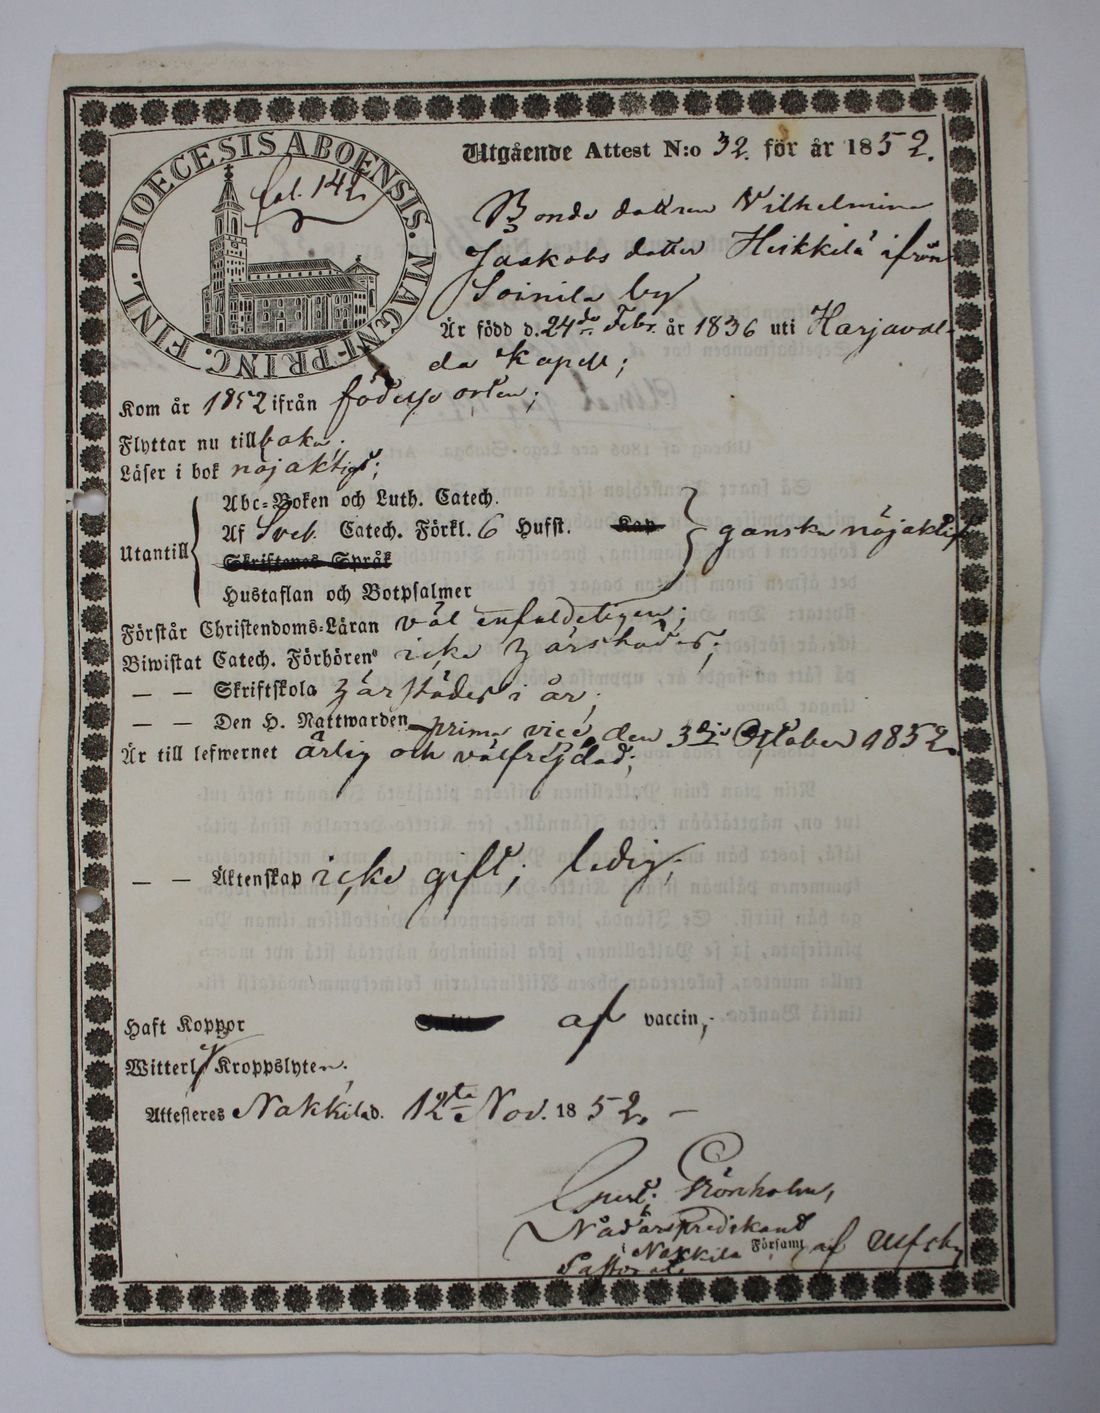 DIOECESIS ABOENSIS. MAGNI-PRINC. FINL.
fol. 142.
Utgående Attest N:o 32. för år 1852.
Bonde dottren Vilhelmina
Jaakobs dotter Heikkilä ifrån
Soinila by
Är född d. 24de Febr. år 1836 uti Harjaval-
da Kapell;
Kom år 1852 ifrån födelse orten;
Flyttar nu tillbaka.
Läser i bok nöjaktigt;
Utantill
Abc-Boken och Luth. Catech.
Af Sveb. Catech. Förkl. 6 Hufst. Kap
Skriftenes Språk
Hustaflan och Botpsalmer
ganska nöjaktigt
Förstår Christendoms-Läran väl enfaldeligen;
Biwistat Catech. Förhören icke härstädes;
— — Skriftskola härstädes i år;
— — Den H. Nattwarden prima vice, den 3dje October 1852.
Är till lefwernet ärlig och välfrejdad;
— — Äktenskap icke gift; ledig;
Haft Koppor af vaccin;
Witterl. Kroppslyten.
Attesteres Nakkila d. 12te Nov. 1852. —
Gust. Grönholm,
Nådårspredikant
i Nakkila Församl. af Ulfsby
Pastorat.